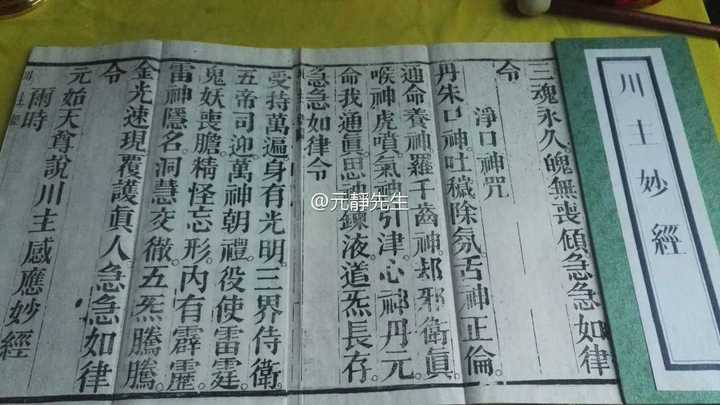 川主妙經
三魂永久。魄無喪傾。急急如律
令
淨口神咒
丹朱口神。吐穢除氛。舌神正倫。
通命養神。羅千齒神。却邪衛眞。
喉神虎噴。氣神引津。心神丹元。
命我通眞。思神鍊液。道炁長存。
急急如律令
受持萬遍。身有光明。三界侍衛。
五帝司迎。萬神朝禮。役使雷霆。
鬼妖喪膽。精怪忘形。内有霹靂。
雷神隱名。洞慧交徹。五炁騰騰。
金光速現。覆護眞人。急急如律
令
元始天尊說川主感應妙經
雨時
@元靜先生